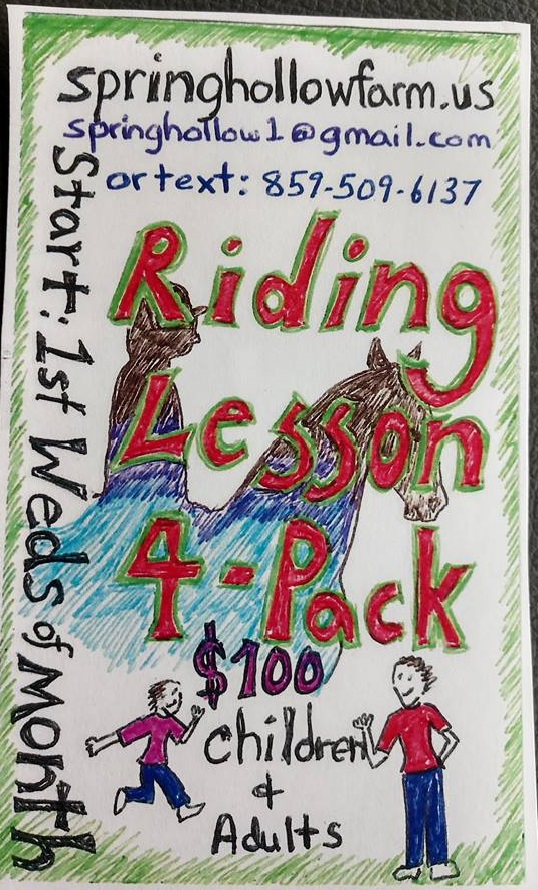 springhollowfarm.us
springhollow1@gmail.com
or text: 859-509-6137
Start: 1st Weds of Month
Riding
Lesson
4-Pack
$100
children
+
Adults